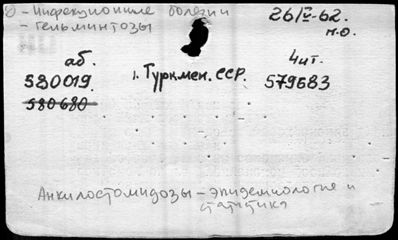 - Инфекционные болезни
- Гельминтозы
26/IV-62.
м.о.
аб.
чит.
580019.
1. Туркмен. ССР.
579683
580680
Анкилостомидозы - эпидемиология и
статистика